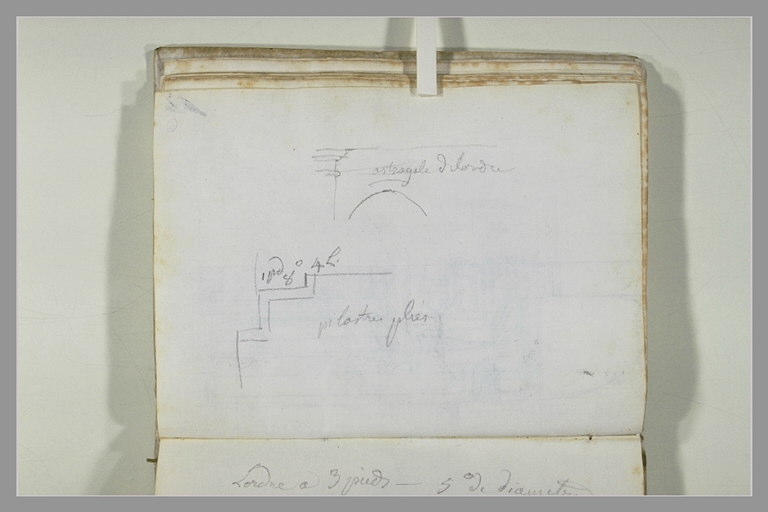 astragale de lordre
1 pd 8° 4 L.
pilastre pliés
Lordre a 3 pieds — 5° de diametre